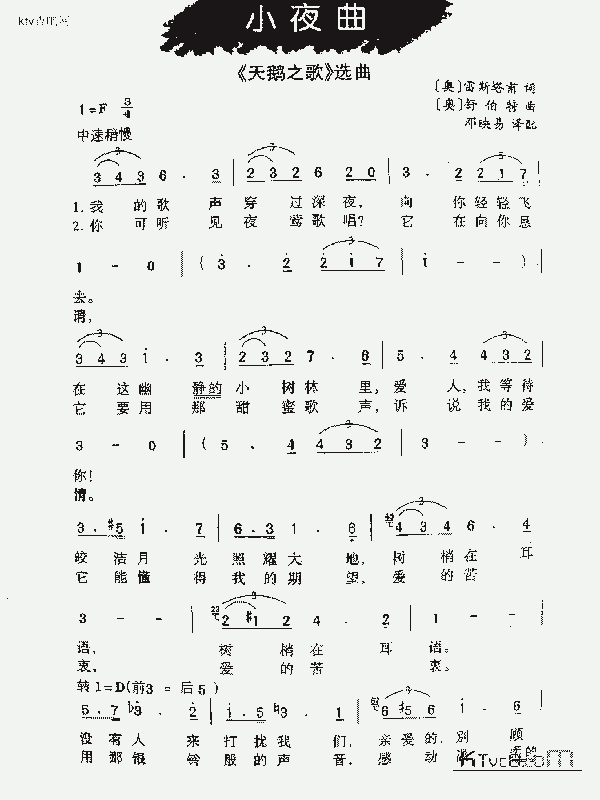 小夜曲
《天鹅之歌》选曲
〔奥〕雷斯塔甫 词
〔奥〕舒伯特 曲
邓映易 译配
1=F 3/4
中速稍慢
3 4 3 6 . 3 | 2 3 2 6 2 0 | 3 . 2 2 1 7
1.我 的歌 声 穿 过深夜, 向 你轻轻飞
2.你 可听 见 夜 莺歌唱? 它 在向你恳
1 - 0 | ( 3 . 2 2 1 7 | 1 - - ) |
去。
请,
3 4 3 1 . 3 | 2 3 2 7 . 6 | 5 . 4 4 3 2
在 这幽 静的 小 树林 里, 爱 人,我等待
它 要用 那 甜 蜜歌 声, 诉 说我的爱
3 - 0 | ( 5 . 4 4 3 2 | 3 - - ) |
你!
情。
3 . #5 1 . 7 | 6 . 3 1 . 6 | 4 3 4 6 . 4
皎 洁月 光 照耀大 地, 树 梢在 耳
它 能懂 得 我的期 望, 爱 的苦
3 - - | 2 #1 2 4 . 2 | 1 - - |
语, 树 梢在 耳 语。
衷, 爱 的苦 衷。
转1=D(前3 = 后5)
5 . 7 3 . 2 | 1 . 5 3 . 1 | 6 5 6 1 . 6
没有人 来 打扰我 们, 亲爱的,别 顾
用那银 铃 般的声 音, 感 动